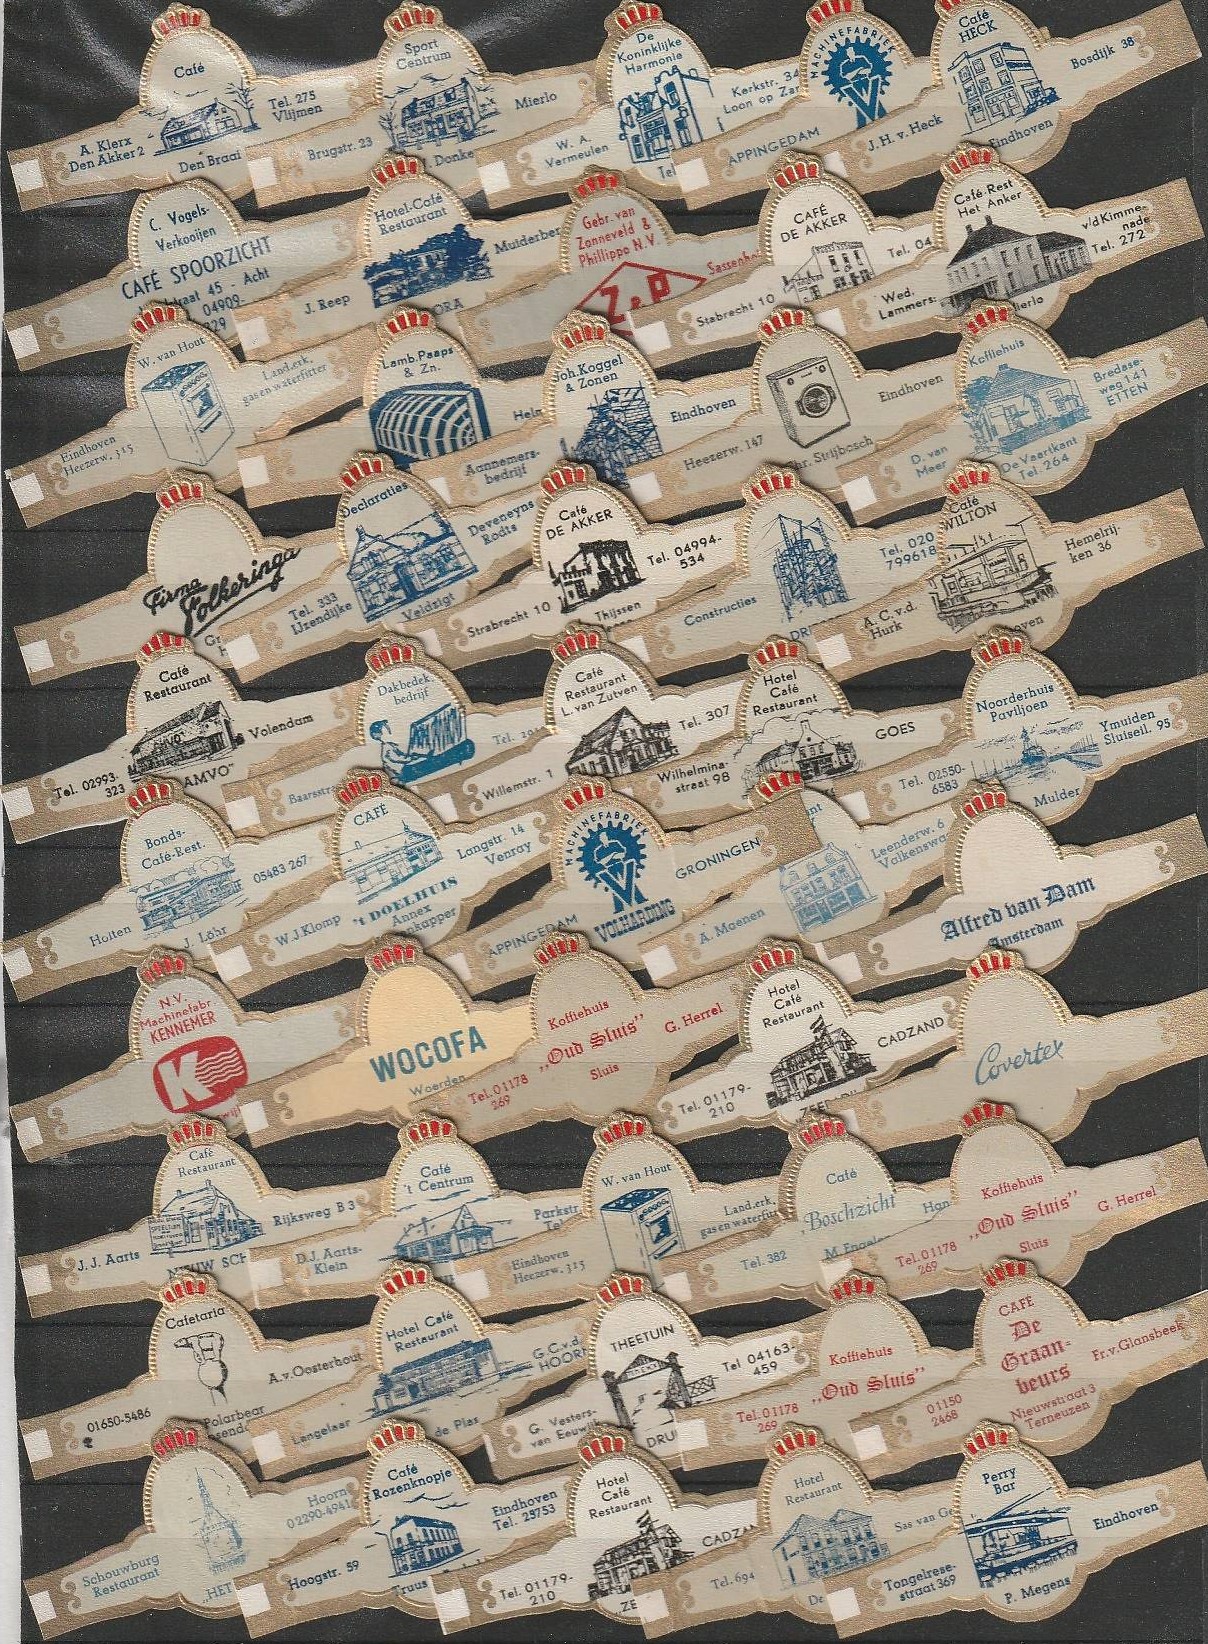 Café
A. Klerx
Den Akker 2
Tel. 275
Vlijmen
Den Braai
Sport
Centrum
Brugstr. 23
Mierlo
Donke
De
Koninklijke
Harmonie
W. A.
Vermeulen
Kerkstr. 34
Loon op Za
Tel
MACHINEFABRIEK
APPINGEDAM
Café
HECK
J. H. v. Heck
Bosdijk 38
Eindhoven
C. Vogels-
Verkooijen
CAFÉ SPOORZICHT
straat 45 - Acht
04909-
329
Hotel-Café
Restaurant
J. Reep
Muiderber
ORA
Gebr. van
Zonneveld &
Phillippo N.V.
Z & P
Sassenh
CAFÉ
DE AKKER
Stabrecht 10
Tel. 04
Café-Rest
Het Anker
Wed.
Lammers
v/d Kimme-
nade
Tel. 272
Mierlo
W. van Hout
Eindhoven
Heezerw. 315
Land.erk.
gas en waterfitter
Lamb. Paaps
& Zn.
Helm
Joh. Koggel
& Zonen
Aannemers-
bedrijf
Eindhoven
Heezerw. 147
Eindhoven
hr. Strijbosch
Koffiehuis
D. van
Meer
Bredase-
weg 141
ETTEN
De Vaartkant
Tel. 264
Firma
Folkeringa
Gr
Declaraties
Tel. 333
IJzendijke
Deveneyns
Rodts
Veldzigt
Café
DE AKKER
Strabrecht 10
Tel. 04994-
534
Thijssen
Constructies
Tel. 020
799618
DRI
Café
WILTON
A. C. v.d.
Hurk
Hemelrij-
ken 36
hoven
Café
Restaurant
Tel. 02993-
323
Volendam
AMVO"
Dakbedek.
bedrijf
Baarsstr
Tel.
Café
Restaurant
L. van Zutven
Willemstr. 1
Tel. 307
Hotel
Café
Restaurant
Wilhelmina-
straat 98
GOES
Noorderhuis
Paviljoen
Tel. 02550-
6583
Ymuiden
Sluiseil. 95
Mulder
Bonds-
Café-Rest.
Holten
05483 267
J. Löhr
CAFÉ
W.J. Klomp
Langstr. 14
Venray
't DOELHUIS
Annex
nkapper
MACHINEFABRIEK
APPINGEDAM
GRONINGEN
VOLHARDING
A. Maenen
Leenderw. 6
Valkenswa
Alfred van Dam
Amsterdam
N.V.
Machinefabr.
KENNEMER
K
WOCOFA
Woerden
Koffiehuis
„Oud Sluis"
Tel. 01178
269
Sluis
G. Herrel
Hotel
Café
Restaurant
Tel. 01179-
210
CADZAND
Covertex
Café
Restaurant
J. J. Aarts
Rijksweg B 3
NIEUW SCH
Café
't Centrum
D.J. Aarts-
Klein
Parkstr
W. van Hout
Eindhoven
Heezerw. 315
Land.erk.
gas en waterfit
Café
„Boschzicht
Tel. 382
Koffiehuis
„Oud Sluis"
Tel. 01178
269
Sluis
G. Herrel
Cafetaria
01650-5486
A. v. Oosterhout
Polarbear
Hotel Café
Restaurant
Langelaar
G.C.v.d.
HOORN
de Plas
THEETUIN
G. Vesters-
van Eeuwijk
Tel 04163-
459
DRU
Koffiehuis
„Oud Sluis"
Tel. 01178
269
CAFÉ
De
Graan-
beurs
01150
2468
Fr. v. Glansbeek
Nieuwstraat 3
Terneuzen
Schouwburg
Restaurant
Hoorn
02290-4941
„HET
Café
Rozenknopje
Hoogstr. 59
Eindhoven
Tel. 23753
Truus
Hotel
Café
Restaurant
Tel. 01179-
210
CADZAN
„ZE
Hotel
Restaurant
Tel. 694
Sas van Ge
De
Perry
Bar
Tongelrese-
straat 369
Eindhoven
P. Megens